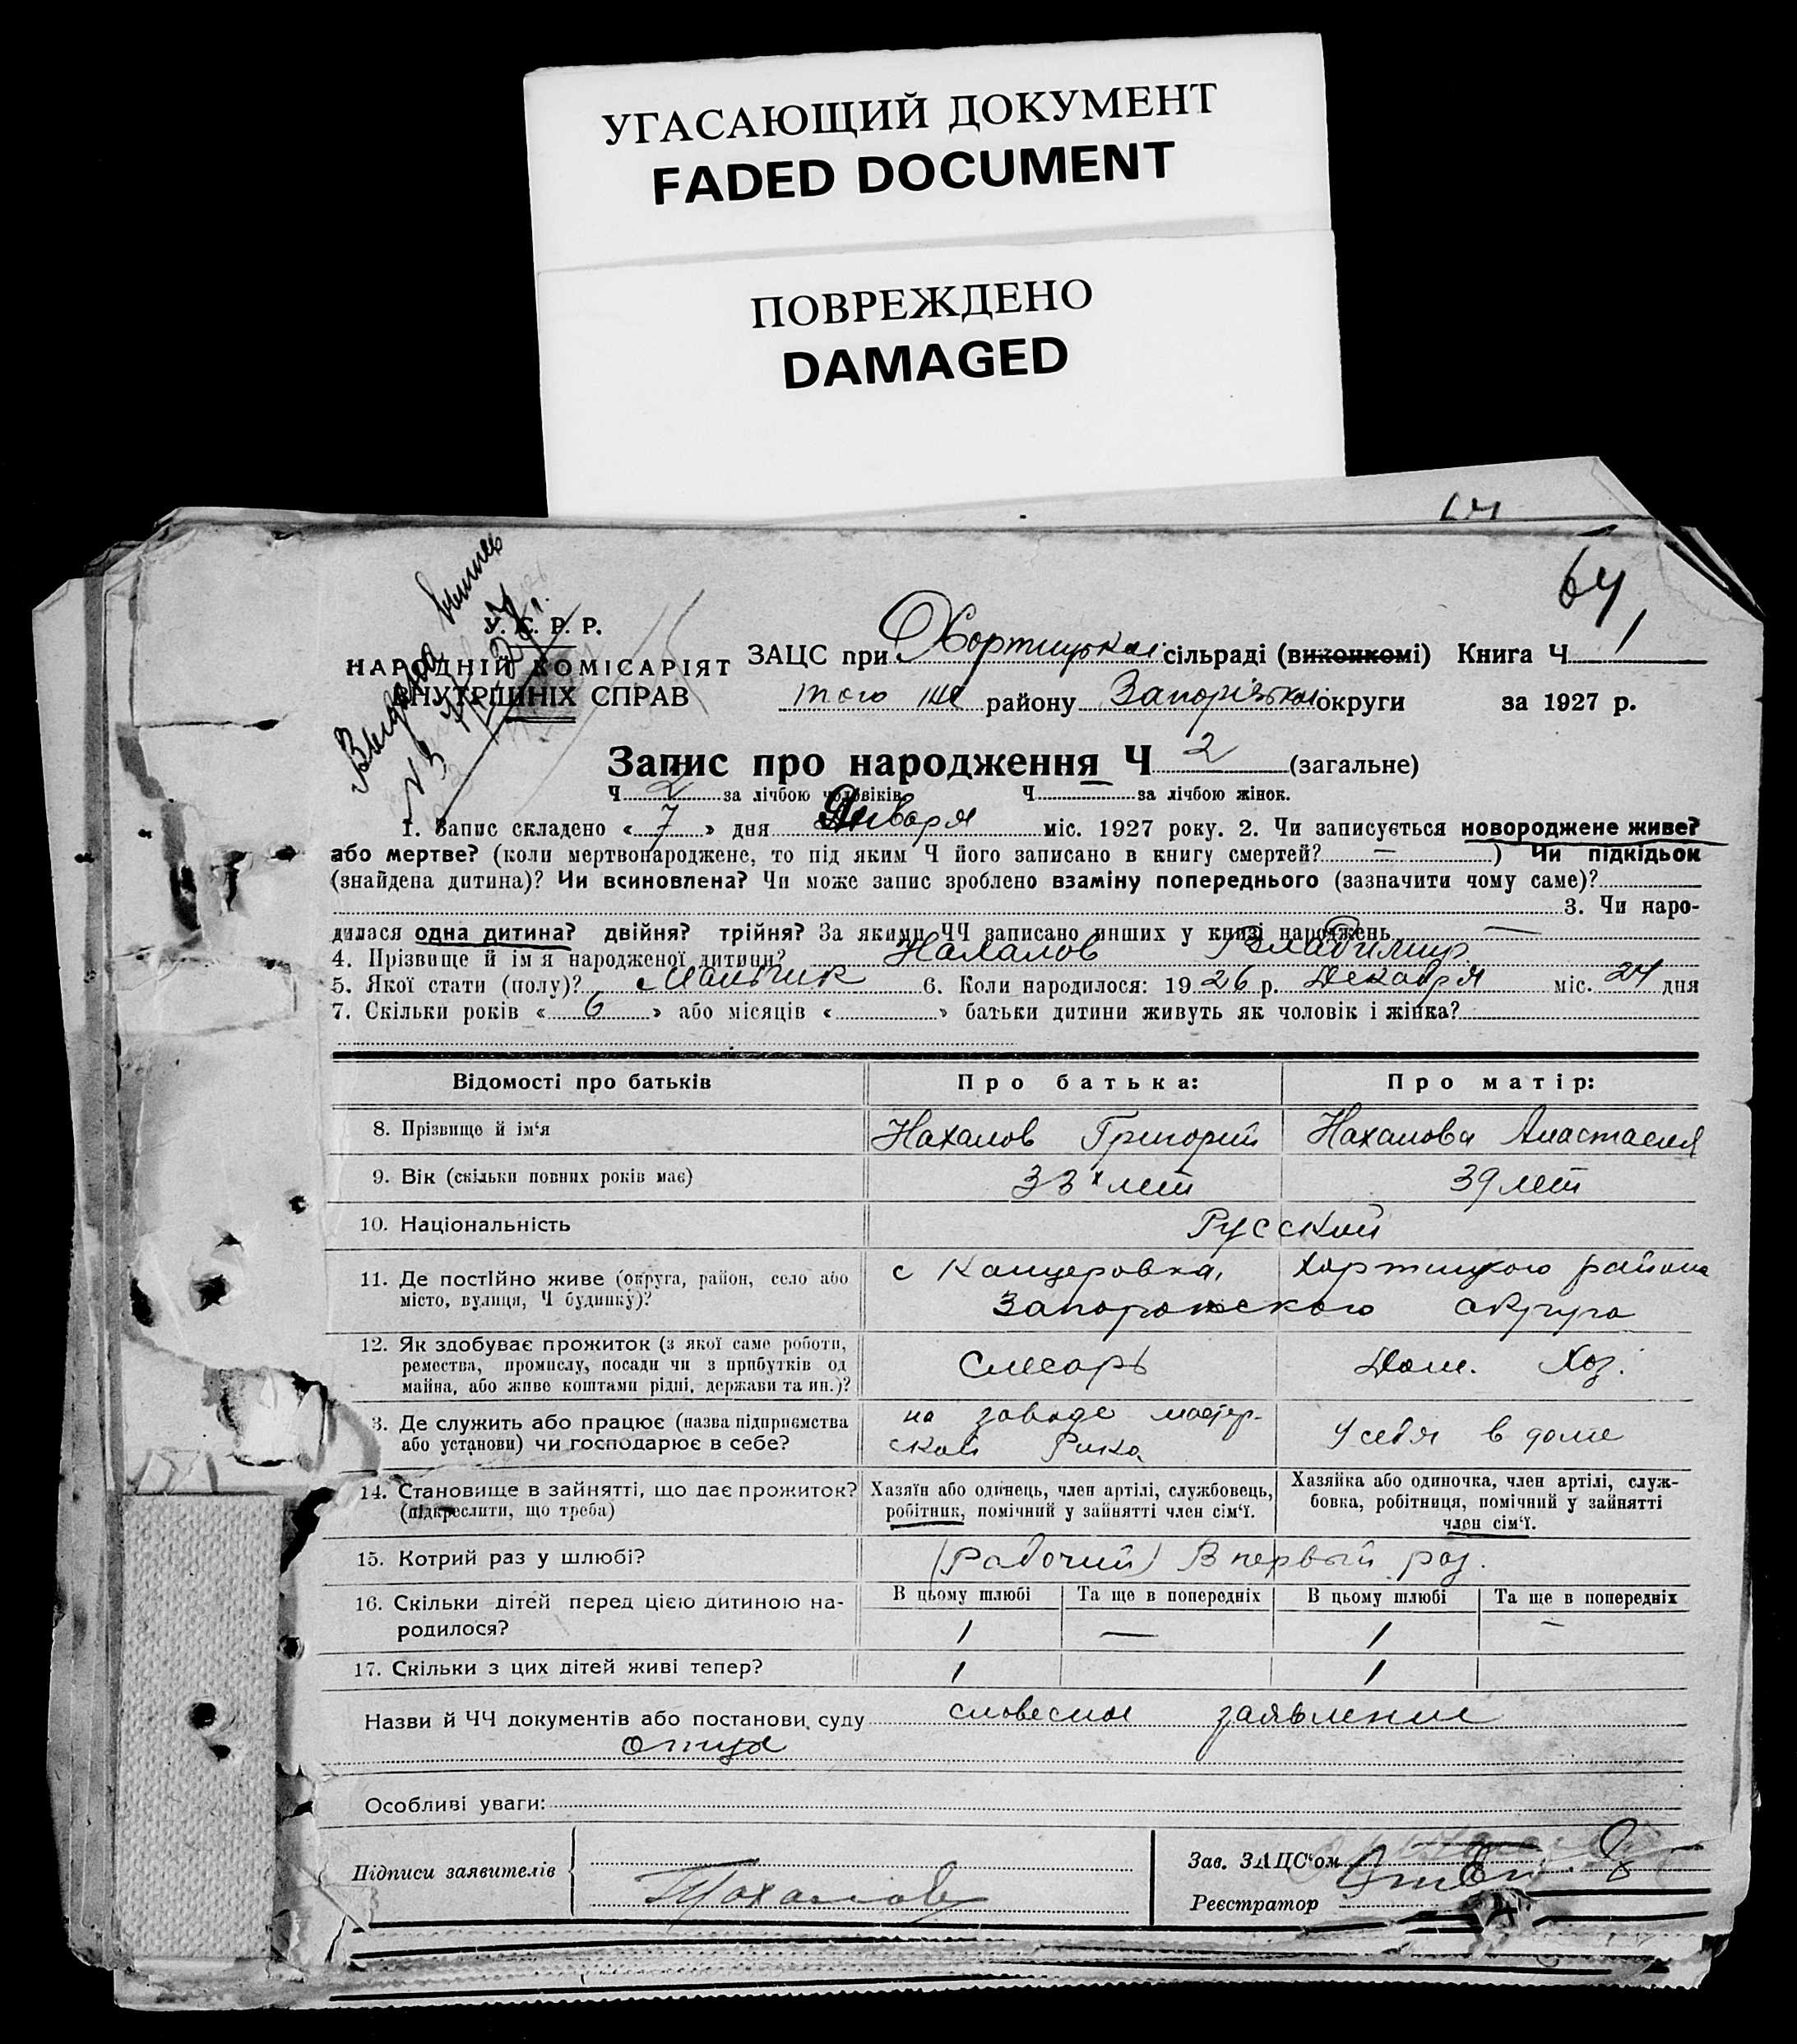 УГАСАЮЩИЙ ДОКУМЕНТ
FADED DOCUMENT
ПОВРЕЖДЕНО
DAMAGED
64
1
У. С. Р. Р.
НАРОДНІЙ КОМІСАРІЯТ
ВНУТРІШНІХ СПРАВ
ЗАЦС при Хортицької сільраді (виконкомі) Книга Ч 1
того же району Запорізької округи за 1927 р.
Запис про народження Ч 2 (загальне)
Ч 2 за лічбою чоловіків Ч за лічбою жінок.
1. Запис складено « 7 » дня Января міс. 1927 року. 2. Чи записується новороджене живе?
або мертве? (коли мертвонароджене, то під яким Ч його записано в книгу смертей? — ) Чи підкідьок
(знайдена дитина)? Чи всиновлена? Чи може запис зроблено взаміну попереднього (зазначити чому саме)?
3. Чи наро-
дилася одна дитина? двійня? трійня? За якими ЧЧ записано инших у книзі народжень —
4. Прізвище й ім'я народженої дитини? Нахалов Владимир
5. Якої стати (полу)? Мальчик 6. Коли народилося: 1926 р. Декабря міс. 24 дня
7. Скільки років « 6 » або місяців « » батьки дитини живуть як чоловік і жінка?
Відомості про батьків Про батька: Про матір:
8. Прізвище й ім'я Нахалов Григорий Нахалова Анастасия
9. Вік (скільки повних років має) 33х лет 39 лет
10. Національність Русский
11. Де постійно живе (округа, район, село або с Канцеровка, Хортицкого района
місто, вулиця, Ч будинку)? Запорожского округа
12. Як здобуває прожиток (з якої саме роботи,
ремества, промислу, посади чи з прибутків од Слесарь Дом. Хоз.
майна, або живе коштами рідні, держави та ин.)?
3. Де служить або працює (назва підприємства на заводе мастер-
або установи) чи господарює в себе? ской Рика У себя в доме
14. Становище в зайнятті, що дає прожиток? Хазяїн або одинець, член артілі, службовець, Хазяйка або одиночка, член артілі, служ-
(підкреслити, що треба) робітник, помічний у зайнятті член сім'ї. бовка, робітниця, помічний у зайнятті
член сім'ї.
15. Котрий раз у шлюбі? (Рабочий) В первый раз.
16. Скільки дітей перед цією дитиною на- В цьому шлюбі Та ще в попередніх В цьому шлюбі Та ще в попередніх
родилося? 1 — 1 —
17. Скільки з цих дітей живі тепер? 1 1
Назви й ЧЧ документів або постанови суду словесное заявление
отца
Особливі уваги:
Підписи заявителів Нахалов
Зав. ЗАЦС'ом
Реєстратор